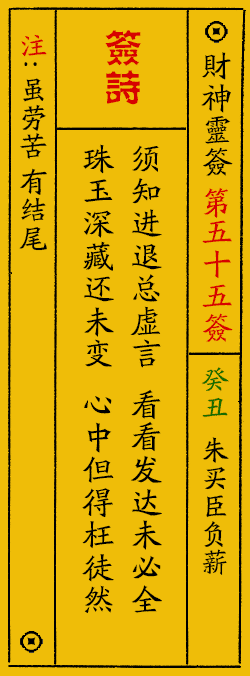 財神靈簽 第五十五簽
癸丑 朱买臣负薪
簽詩
须知进退总虚言 看看发达未必全
珠玉深藏还未变 心中但得枉徒然
注:虽劳苦有结尾